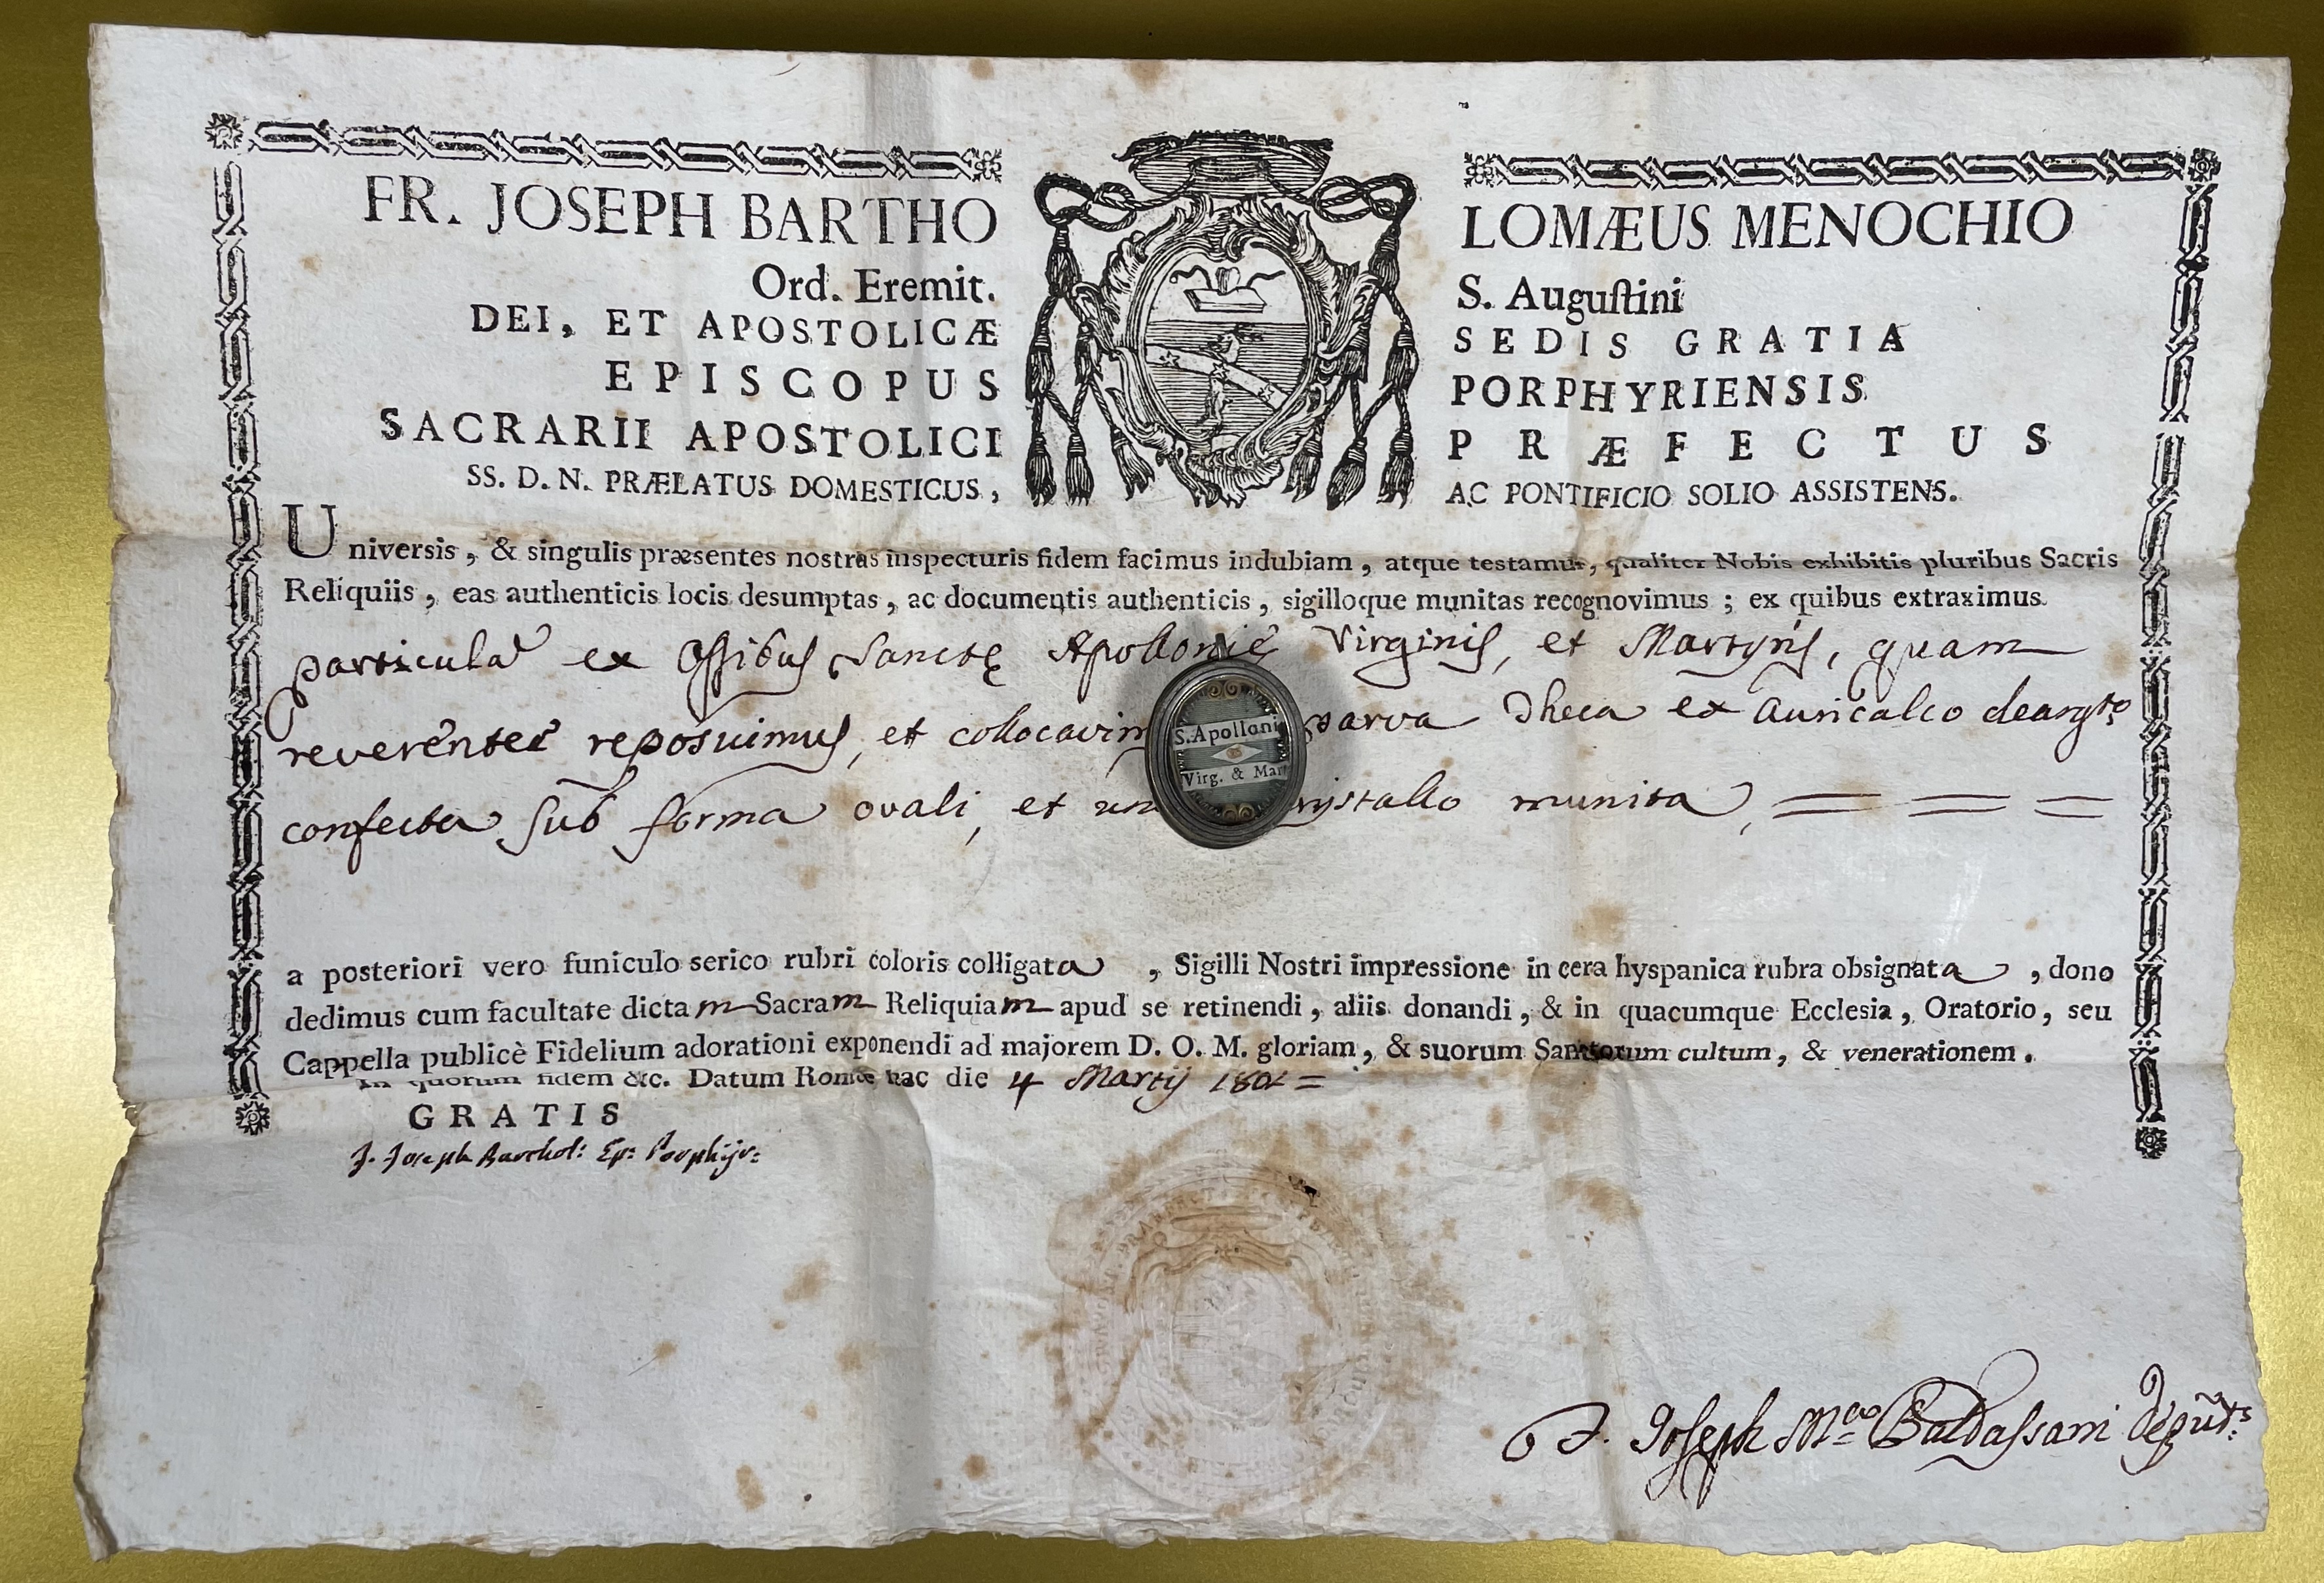 FR. JOSEPH BARTHO LOMÆUS MENOCHIO
Ord. Eremit. S. Auguſtini
DEI, ET APOSTOLICÆ SEDIS GRATIA
EPISCOPUS PORPHYRIENSIS
SACRARII APOSTOLICI PRÆFECTUS
SS. D. N. PRÆLATUS DOMESTICUS, AC PONTIFICIO SOLIO ASSISTENS.
Universis, & singulis præsentes nostras inspecturis fidem facimus indubiam, atque testamur, qualiter Nobis exhibitis pluribus Sacris
Reliquiis, eas authenticis locis desumptas, ac documentis authenticis, sigilloque munitas recognovimus; ex quibus extraximus
particulã ex Ossibus Sanctę Apollonię Virginis, et Martyris, quam
reverenter reposuimus, et collocavim parva Theca ex Auricalco
confecta sub forma ovali, et un rystallo munita,
S. Apolloni
Virg. & Mar
a posteriori vero funiculo serico rubri coloris colligata, Sigilli Nostri impressione in cera hyspanica rubra obsignata, dono
dedimus cum facultate dictam Sacram Reliquiam apud se retinendi, aliis donandi, & in quacumque Ecclesia, Oratorio, seu
Cappella publicè Fidelium adorationi exponendi ad majorem D. O. M. gloriam, & suorum Sanctorum cultum, & venerationem.
In quorum fidem &c. Datum Romæ hac die 4 Martij
GRATIS
F. Joseph Barthol: Ep: Porphyr:
F. Joseph Baldassani